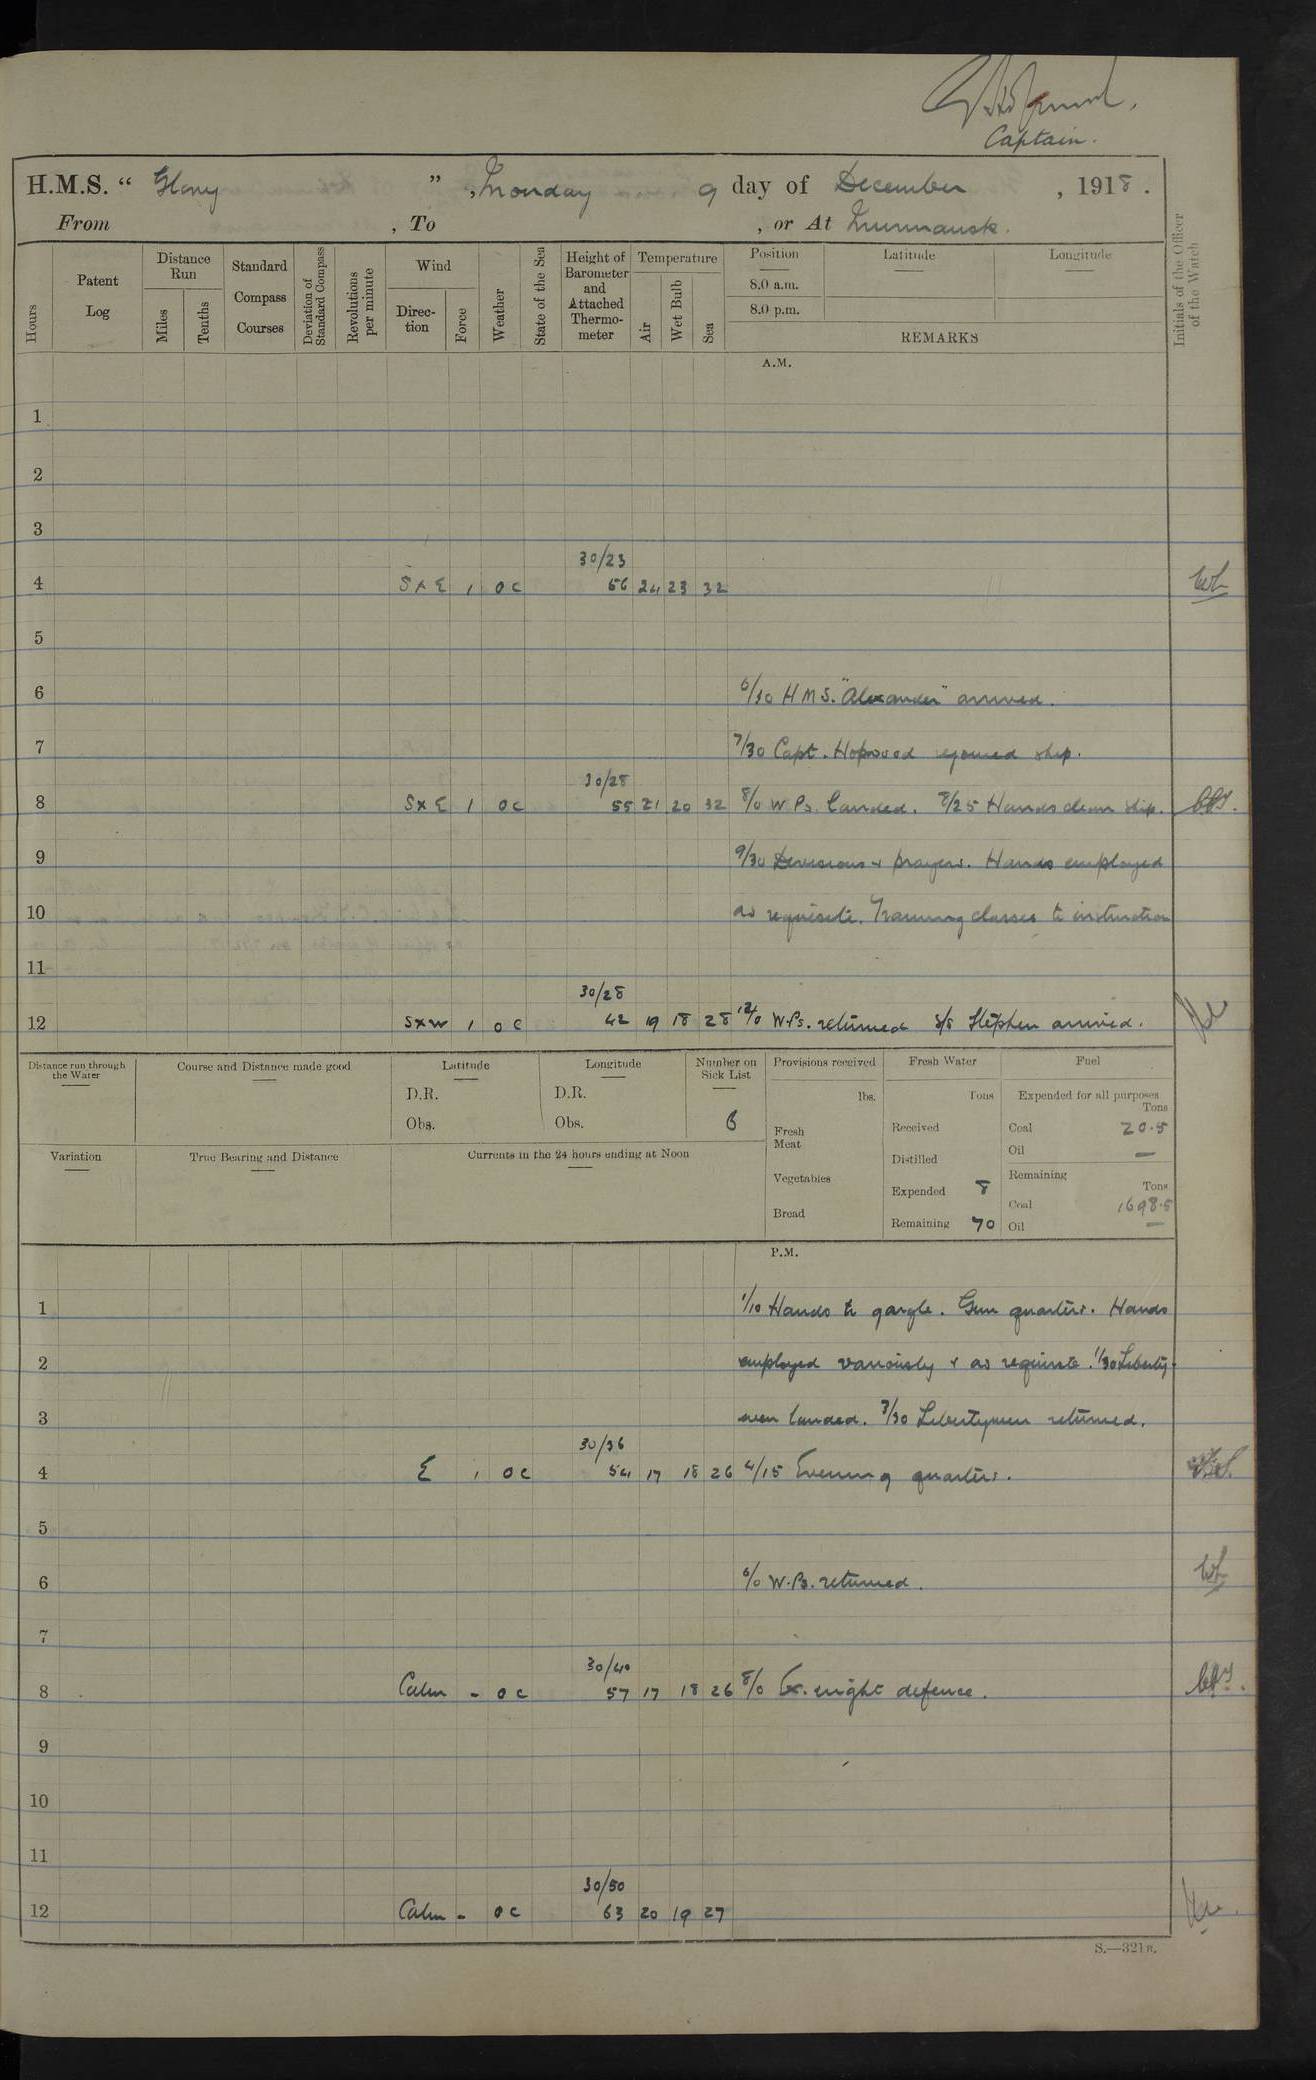 Captain.
H.M.S. “ Glory ” , Monday 9 day of December , 1918 .
From , To , or At Murmansk.
Hours
Patent Log
Distance Run
Miles
Tenths
Standard Compass Courses
Deviation of Standard Compass
Revolutions per minute
Wind
Direction
Force
Weather
State of the Sea
Height of Barometer and Attached Thermometer
Temperature
Air
Wet Bulb
Sea
Position Latitude Longitude
8.0 a.m.
8.0 p.m.
REMARKS
Initials of the Officer of the Watch
A.M.
1
2
3
30/23
4 S x E 1 o c 56 24 23 32
5
6 6/30 H M S. "Alexander" arrived.
7 7/30 Capt. Hopwood rejoined ship.
30/28
8 S x E 1 o c 55 21 20 32 8/0 W Ps. landed. 8/25 Hands clean ship.
9 9/30 Divisions & prayers. Hands employed
10 as requisite. Training classes to instruction
11
30/28
12 S x W 1 o c 42 19 18 28 12/0 W.Ps. returned S/S Stephen arrived.
Distance run through the Water
Course and Distance made good
Latitude
D.R.
Obs.
Longitude
D.R.
Obs.
Number on Sick List
6
Provisions received
lbs.
Fresh Meat
Vegetables
Bread
Fresh Water
Tons
Received
Distilled
Expended 8
Remaining 70
Fuel
Expended for all purposes
Tons
Coal 20.5
Oil —
Remaining
Tons
Coal 1698.5
Oil —
Variation
True Bearing and Distance
Currents in the 24 hours ending at Noon
P.M.
1 1/10 Hands to gargle. Gun quarters. Hands
2 employed variously & as requisite. 1/30 Liberty-
3 men landed. 3/30 Libertymen returned.
30/36
4 E 1 o c 54 17 18 26 4/15 Evening quarters.
5
6 6/0 W.Ps. returned.
7
30/40
8 Calm - o c 57 17 18 26 8/0 Ex. night defence.
9
10
11
30/50
12 Calm - o c 63 20 19 27
S.—321B.